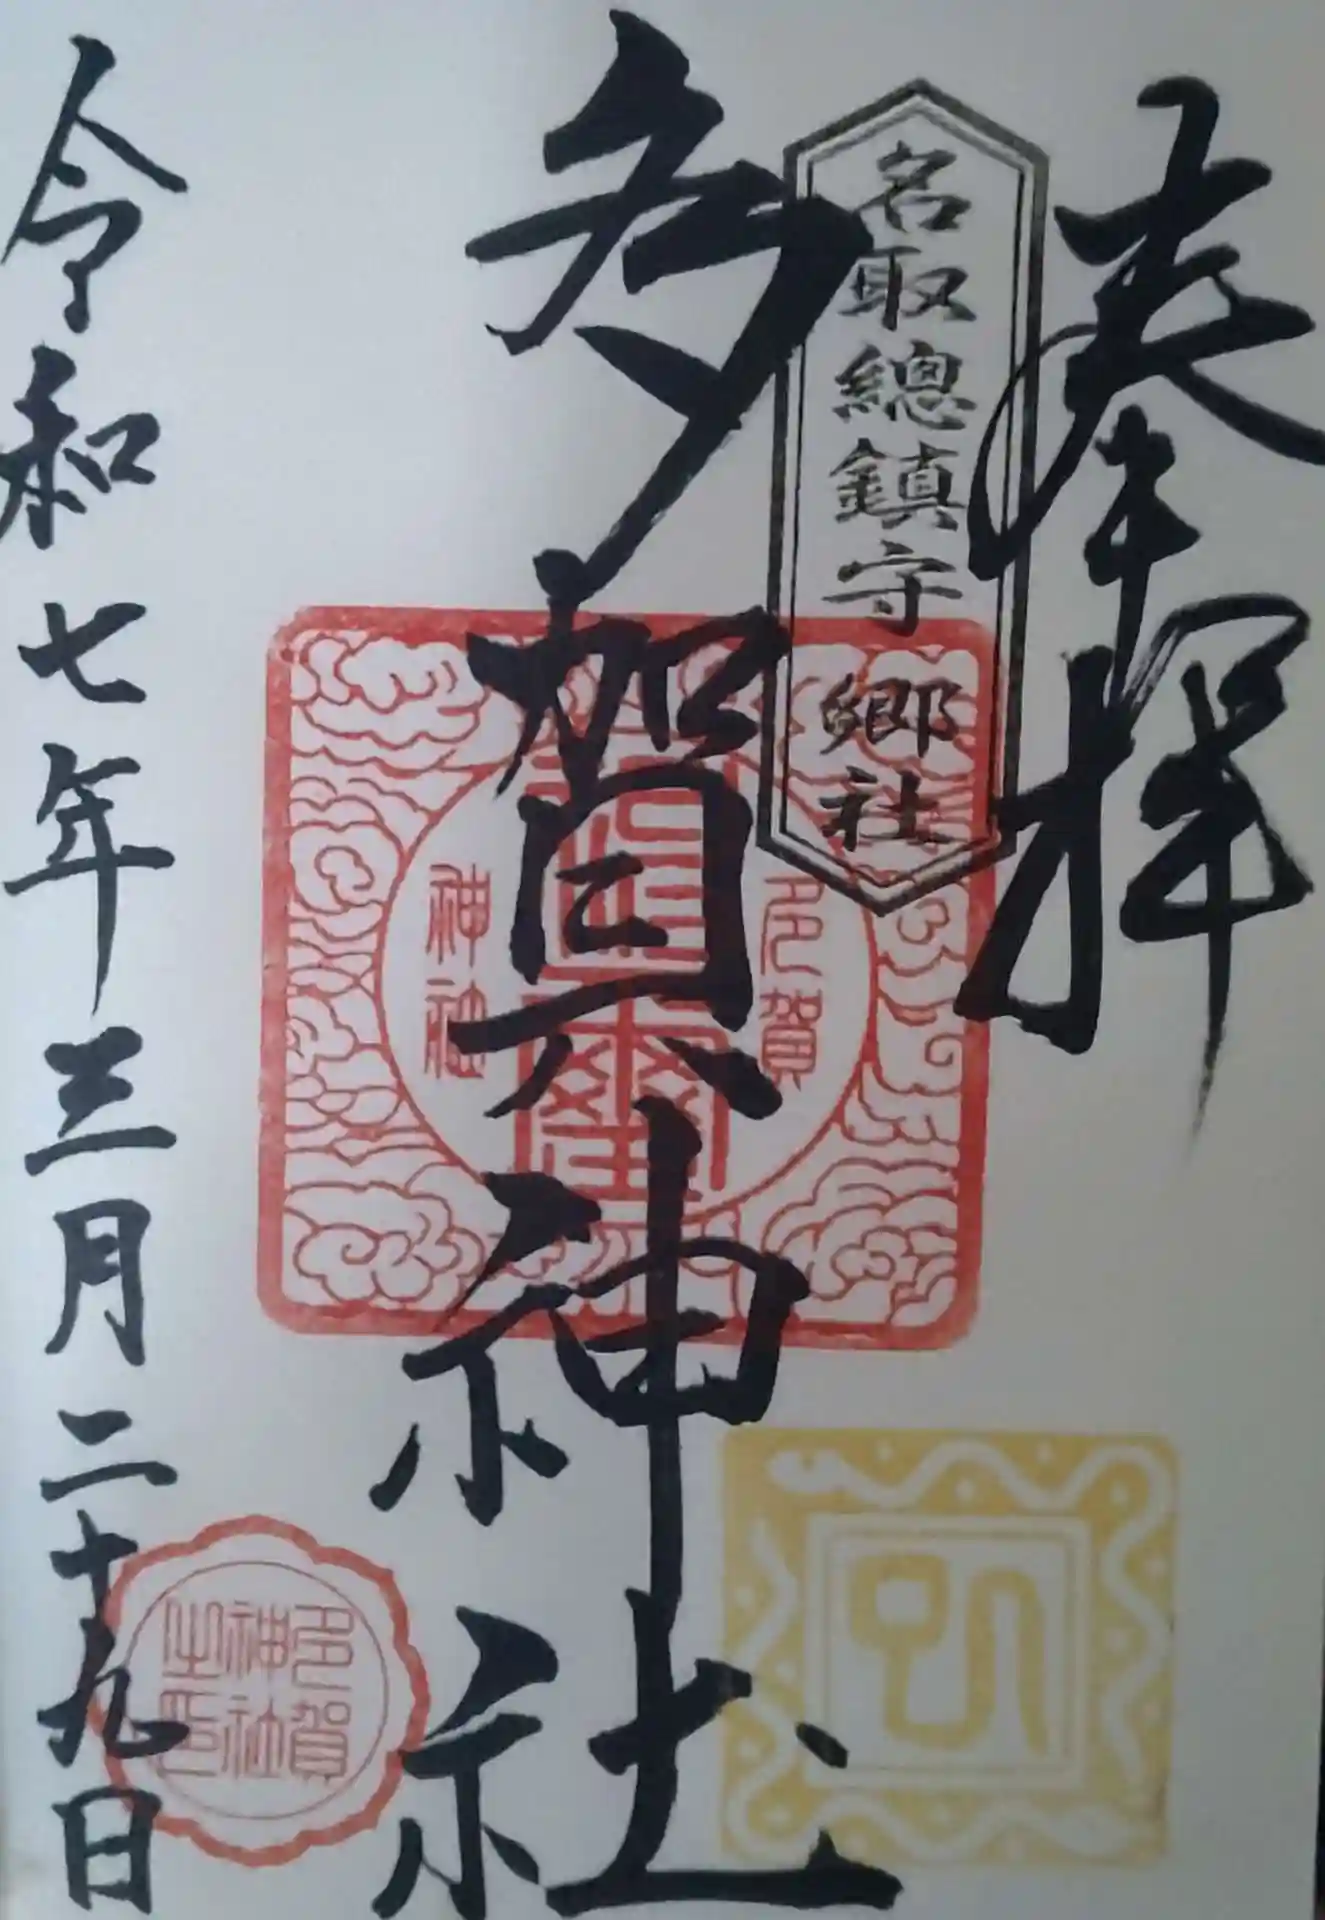 奉拝
名取總鎮守 郷社
多賀神社
多賀
神社
多賀
神社
之印
令和七年三月二十九日